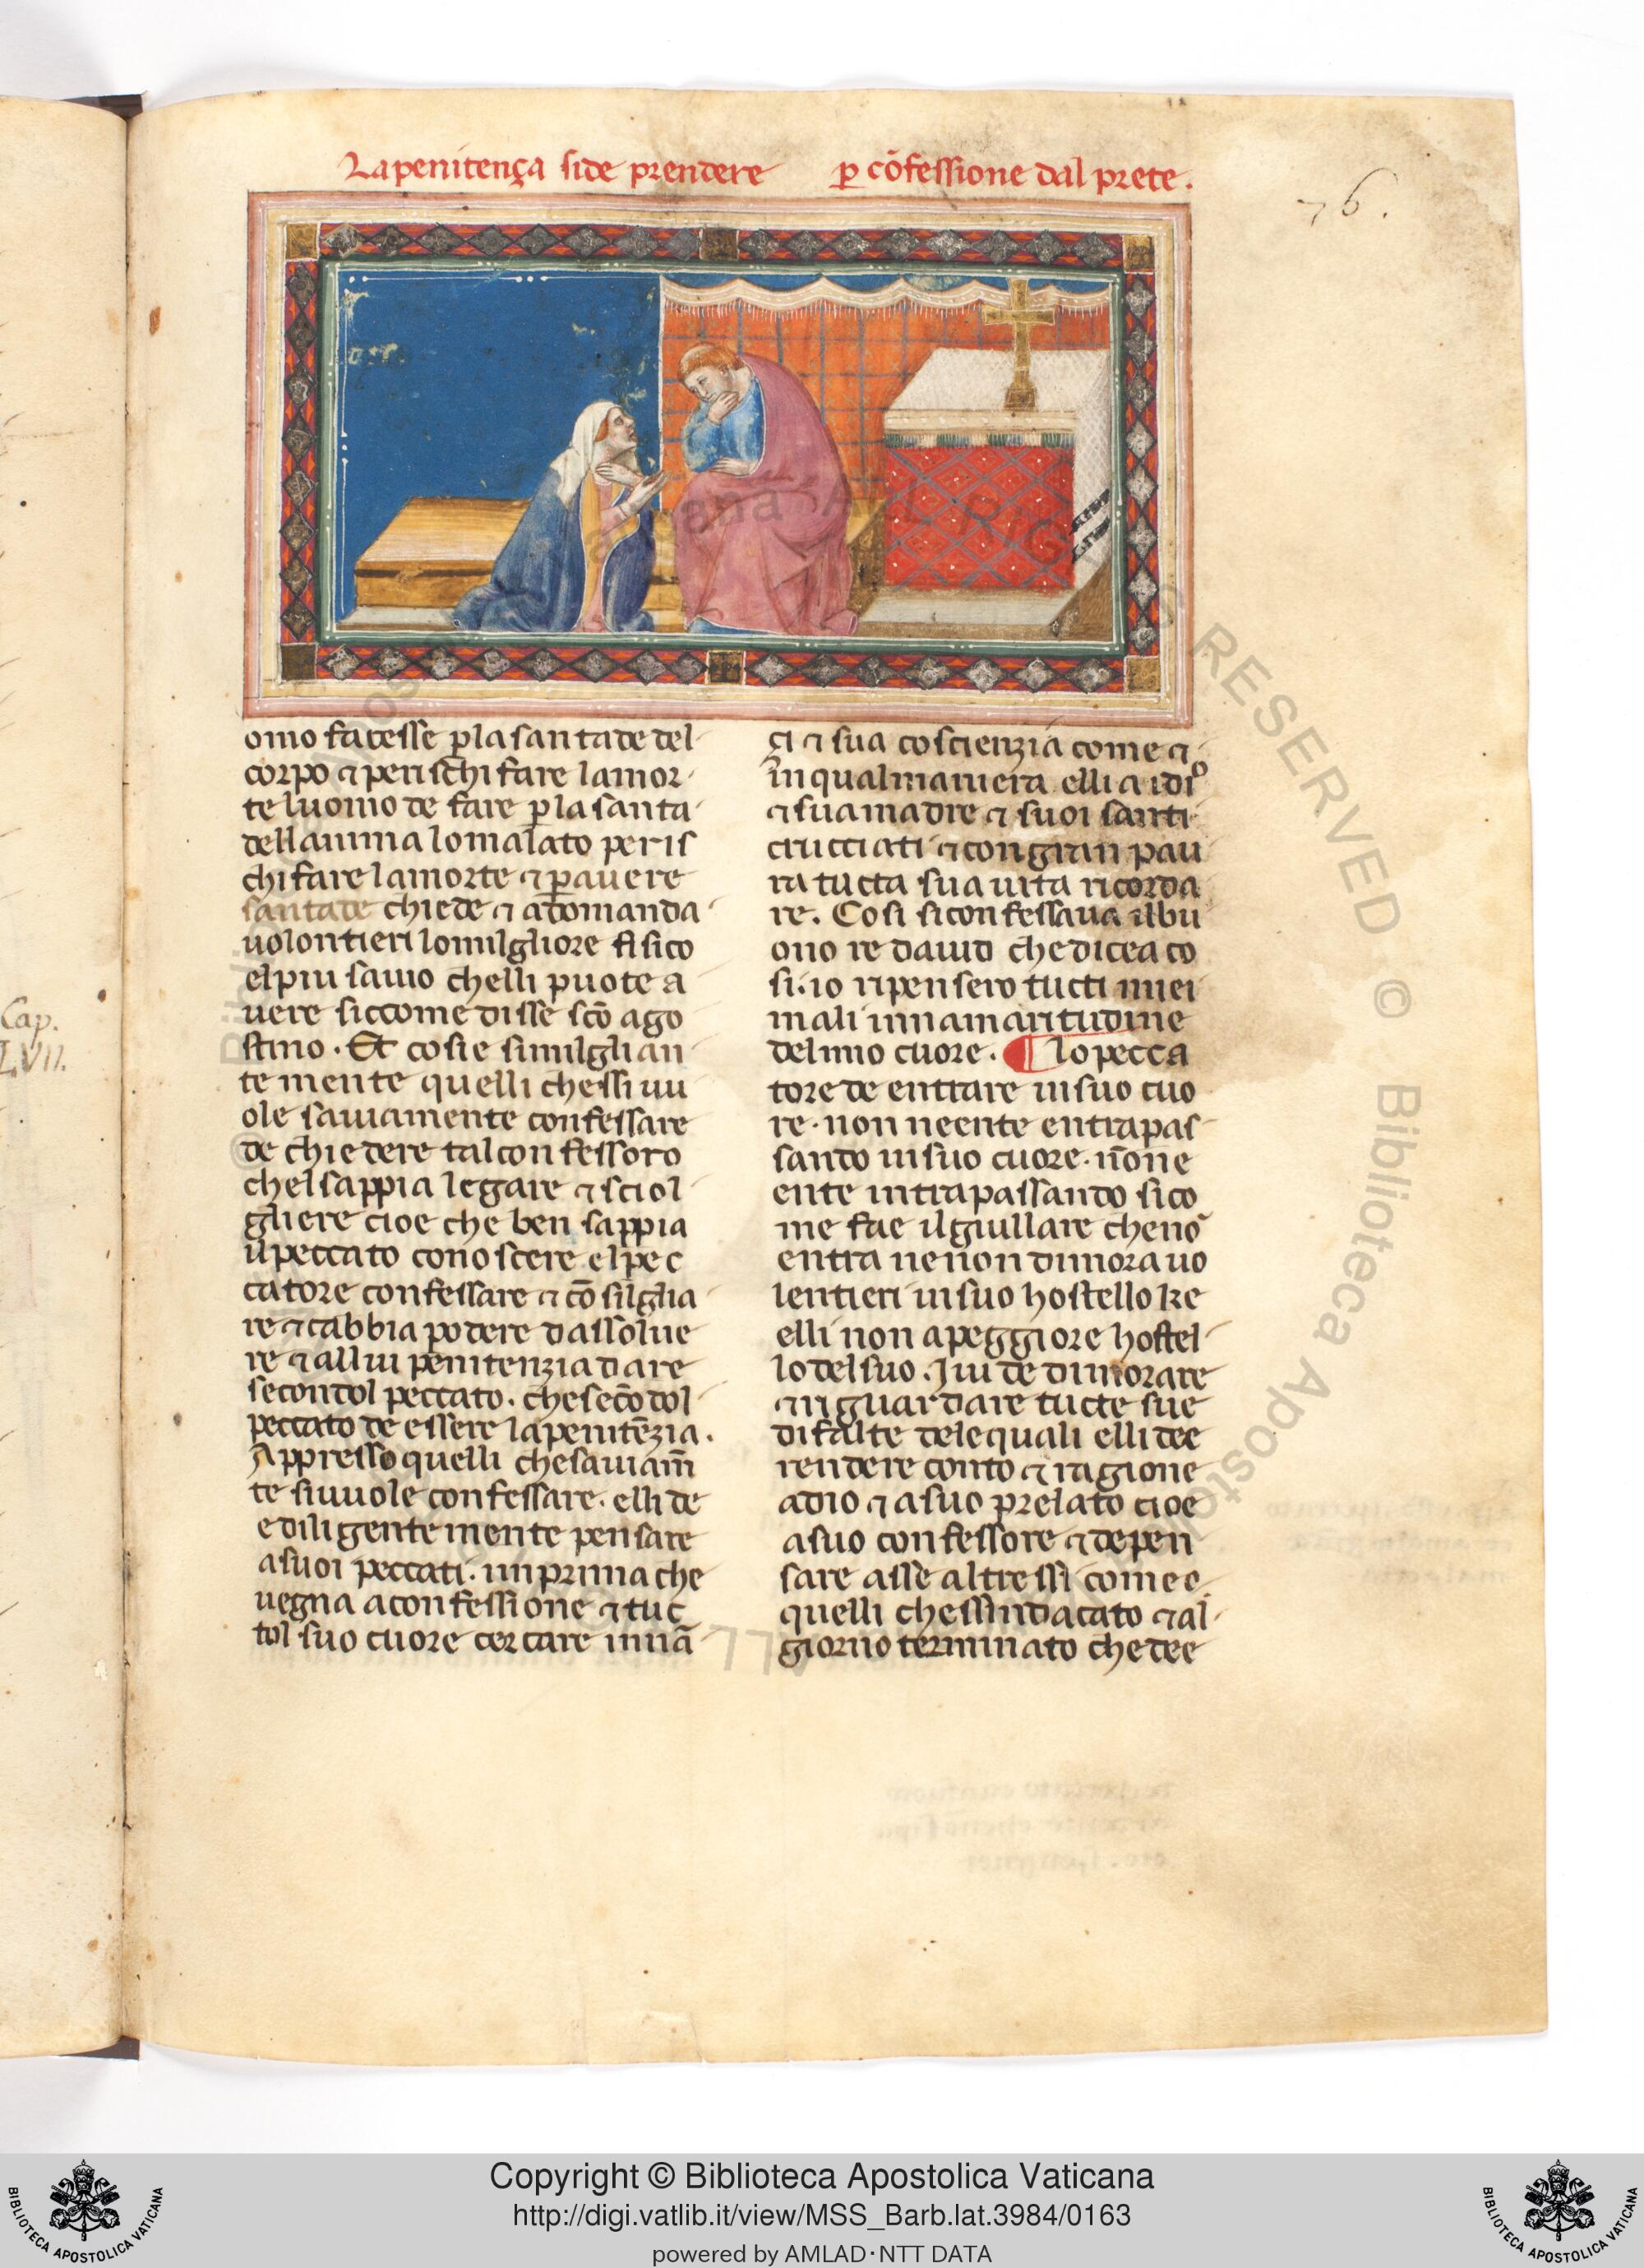 Lapenitença side prendere ꝑ cõfessione dal prete.
76.
omo facesse ꝑ la santade del
corpo ⁊ per ischifare la mor
te luomo de fare ꝑ la santa
dellanima lo malato per is
chifare la morte ⁊ ꝑ auere
santade chiede ⁊ adomanda
uolontieri lo milgliore fisico
el piu sauio chelli puote a
uere siccome disse sc̄o ago
stino. Et cosi e similglian
te mente quelli chessi uu
ole sauiamente confessare
de chiedere tal confessoro
chel sappia legare ⁊ sciol
gliere cioe che ben sappia
il peccato conoscere el pec
catore confessare ⁊ cō silglia
re ⁊ cabbia podere dassolue
re ⁊ allui penitenzia dare
secondol peccato. che secōdol
peccato de essere la penitēzia.
Appresso quelli che sauiam̄
te si uuole confessare. elli de
e diligente mente pensare
a suoi peccati. in prima che
uegna a confessione ⁊ tuc
tol suo cuore cercare innā
çi ⁊ sua coscienzia come ⁊
in qual maniera elli a idio
⁊ sua madre ⁊ suoi santi
crucciati ⁊ con gran pau
ra tucta sua uita ricorda
re. Cosi si confessaua il bu
ono re dauid che dicea co
si. io ripensero tucti miei
mali in namaritudine
del mio cuore. ¶ lo pecca
tore de entrare in suo cuo
re. non neente entrapas
sando in suo cuore. nōne
ente intrapassando sico
me fae il giullare che nō
entra ne non dimora uo
lentieri in suo hostello ke
elli non a peggiore hostel
lo del suo. Iui de dimorare
⁊ riguardare tucte sue
difalte dele quali elli dee
rendere conto ⁊ ragione
a dio ⁊ a suo prelato cioe
a suo confessore ⁊ de pen
sare a sse altressi come e
quelli chessindacato ⁊ al
giorno terminato che dee
Cap.
LVII.
Copyright © Biblioteca Apostolica Vaticana
http://digi.vatlib.it/view/MSS_Barb.lat.3984/0163
powered by AMLAD·NTT DATA
BIBLIOTECA APOSTOLICA VATICANA
BIBLIOTECA APOSTOLICA VATICANA